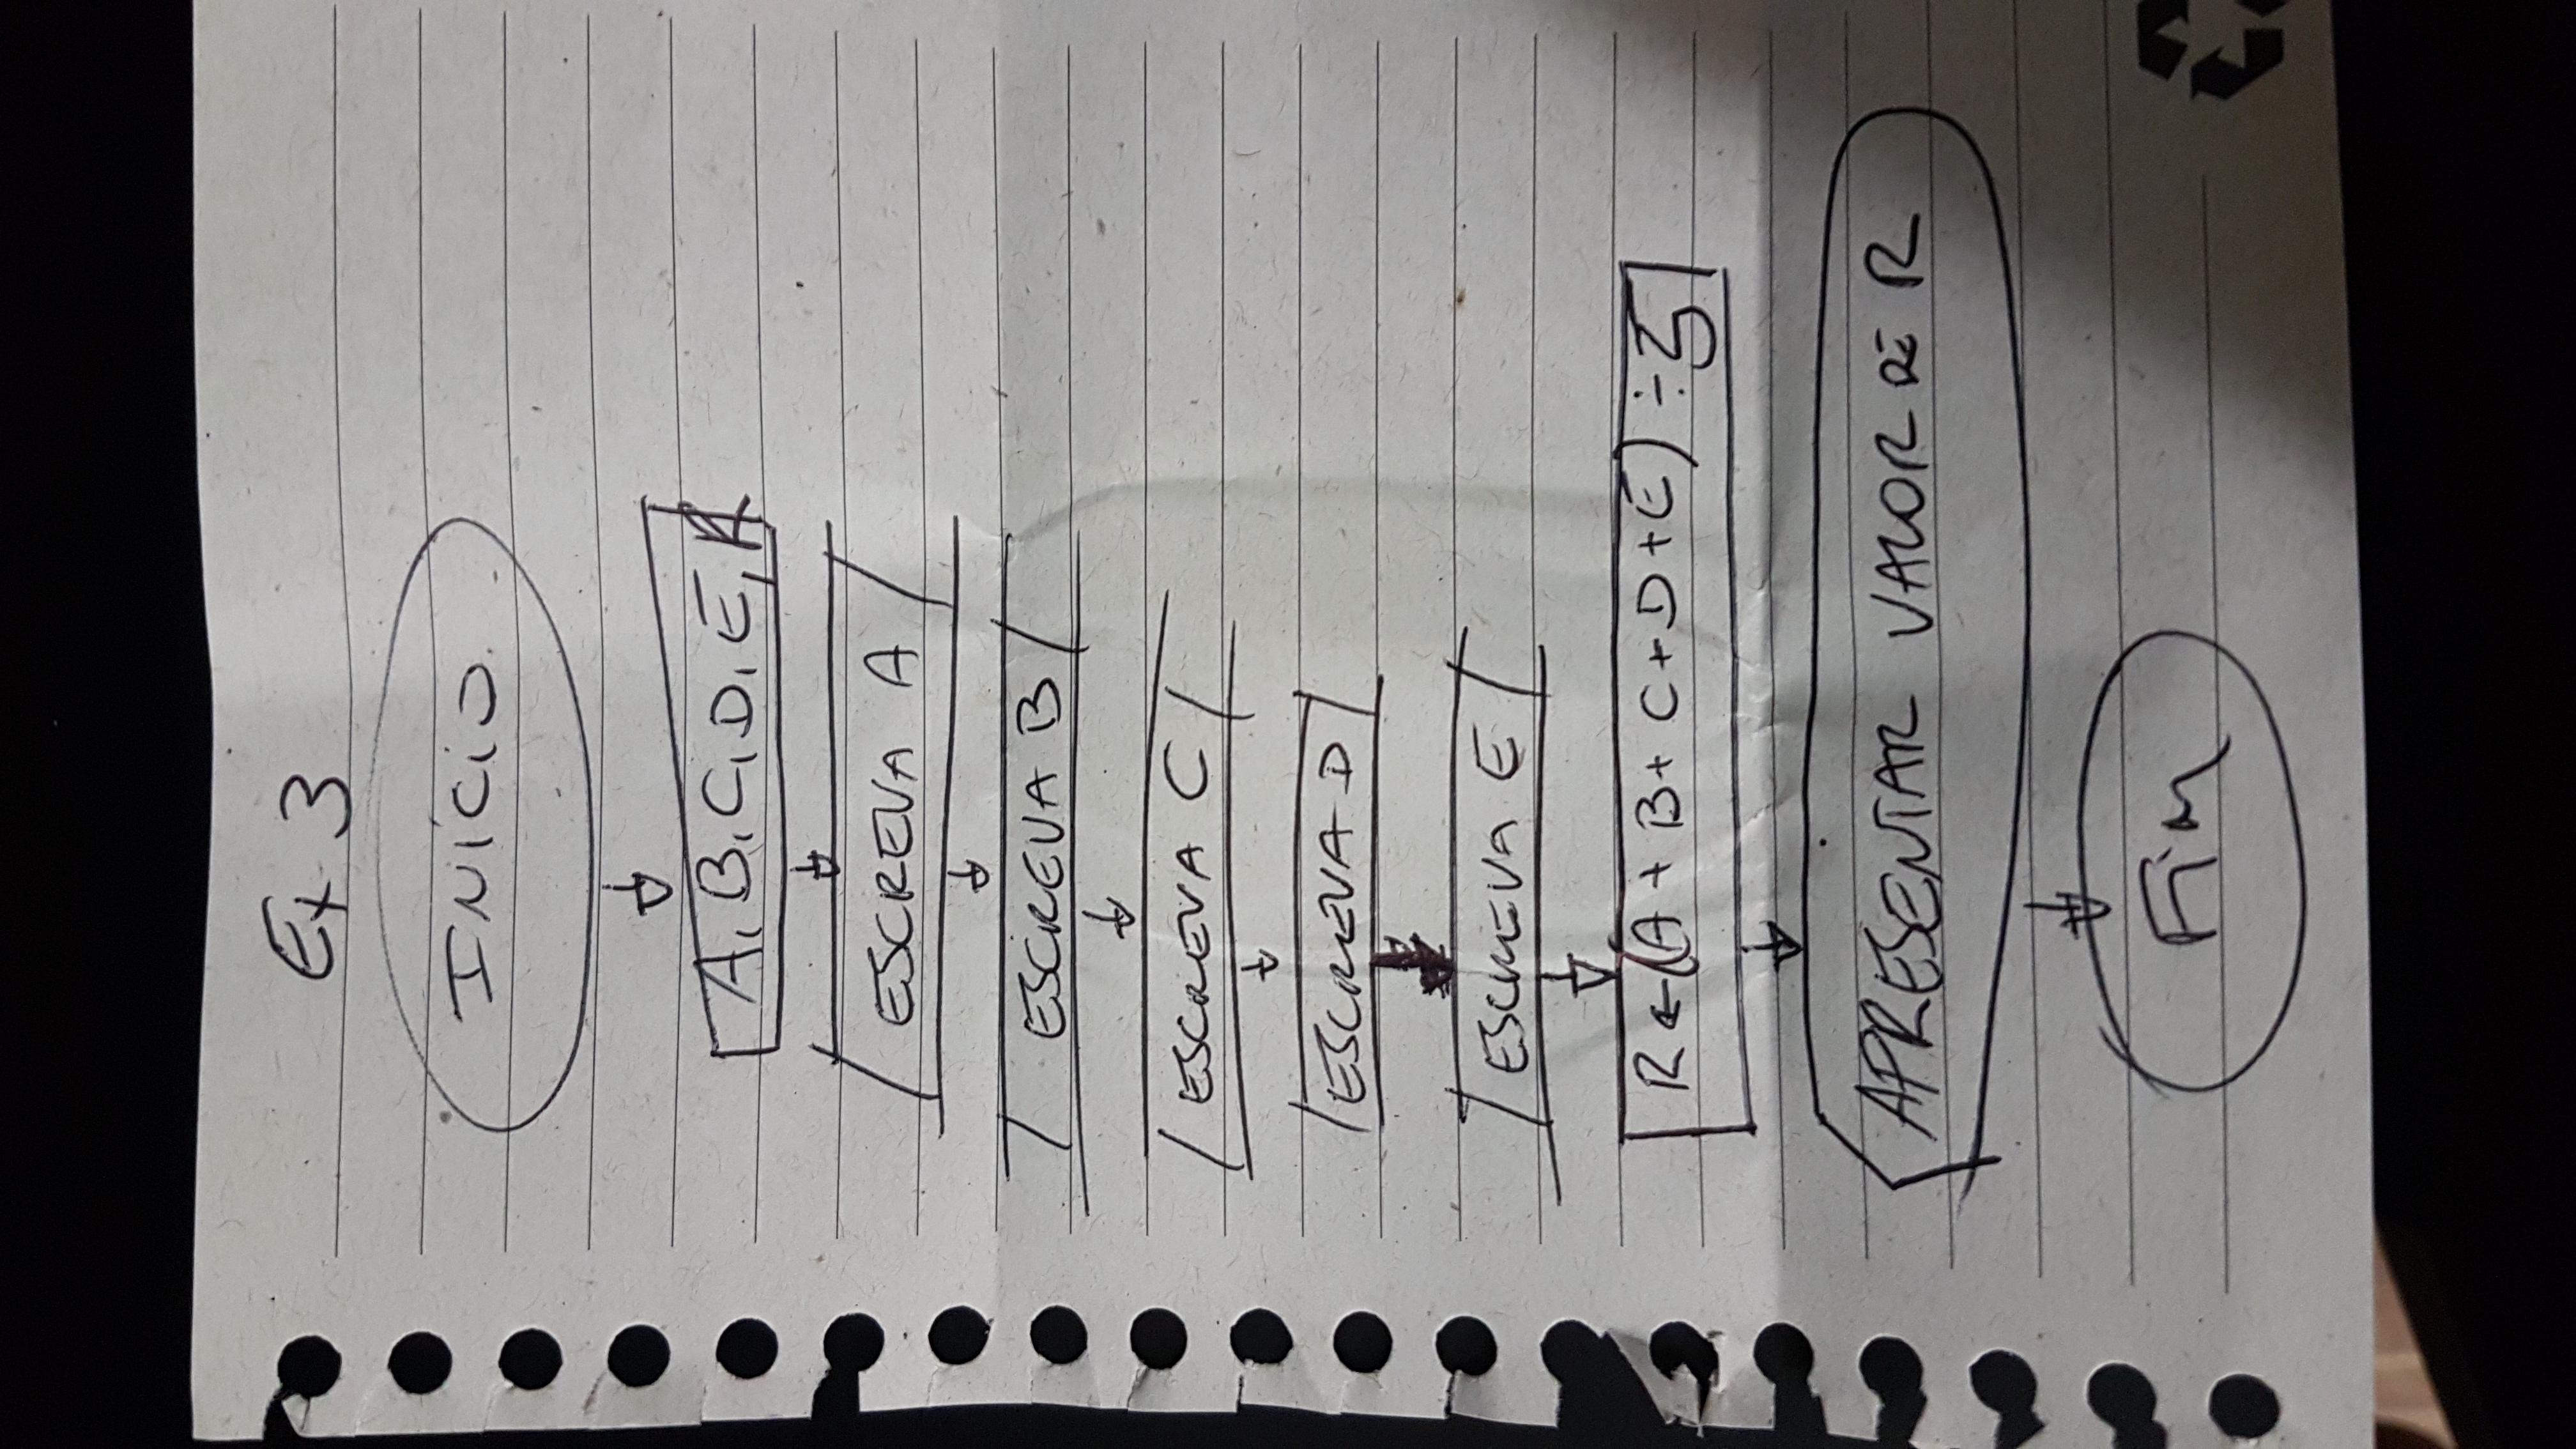 Ex 3
INÍCIO
A, B, C, D, E, R
ESCREVA A
ESCREVA B
ESCREVA C
ESCREVA D
ESCREVA E
R ← (A + B + C + D + E) ÷ 5
APRESENTAR VALOR DE R
Fim